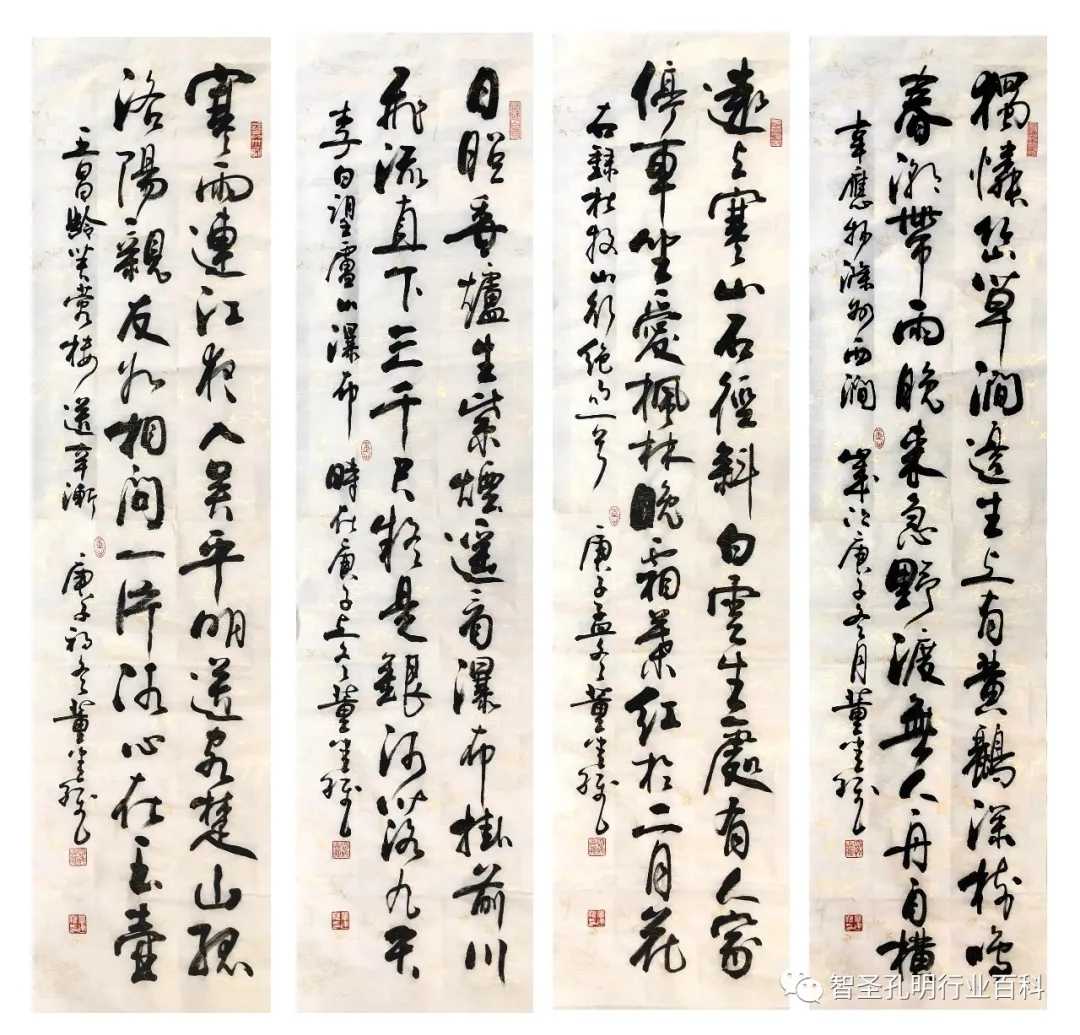 獨憐幽草澗邊生上有黃鸝深樹鳴
春潮帶雨晚來急野渡無人舟自橫
韋應物滁州西澗 歲次庚子冬月董
遠上寒山石徑斜白雲生處有人家
停車坐愛楓林晚霜葉紅於二月花
右錄杜牧山行絕句一首 庚子孟冬董
日照香爐生紫煙遙看瀑布掛前川
飛流直下三千尺疑是銀河落九天
李白望廬山瀑布 時在庚子上冬董
寒雨連江夜入吳平明送客楚山孤
洛陽親友如相問一片冰心在玉壺
王昌齡芙蓉樓送辛漸 庚子初冬董
智圣孔明行业百科